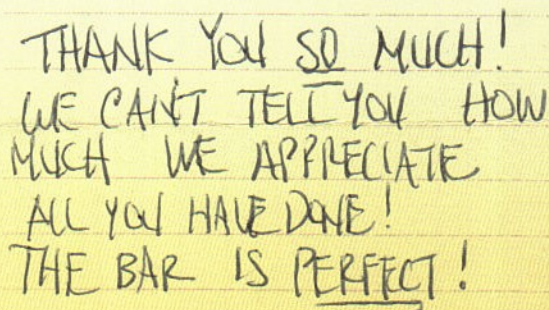 THANK YOU SO MUCH!
WE CAN'T TELL YOU HOW
MUCH WE APPRECIATE
ALL YOU HAVE DONE!
THE BAR IS PERFECT!